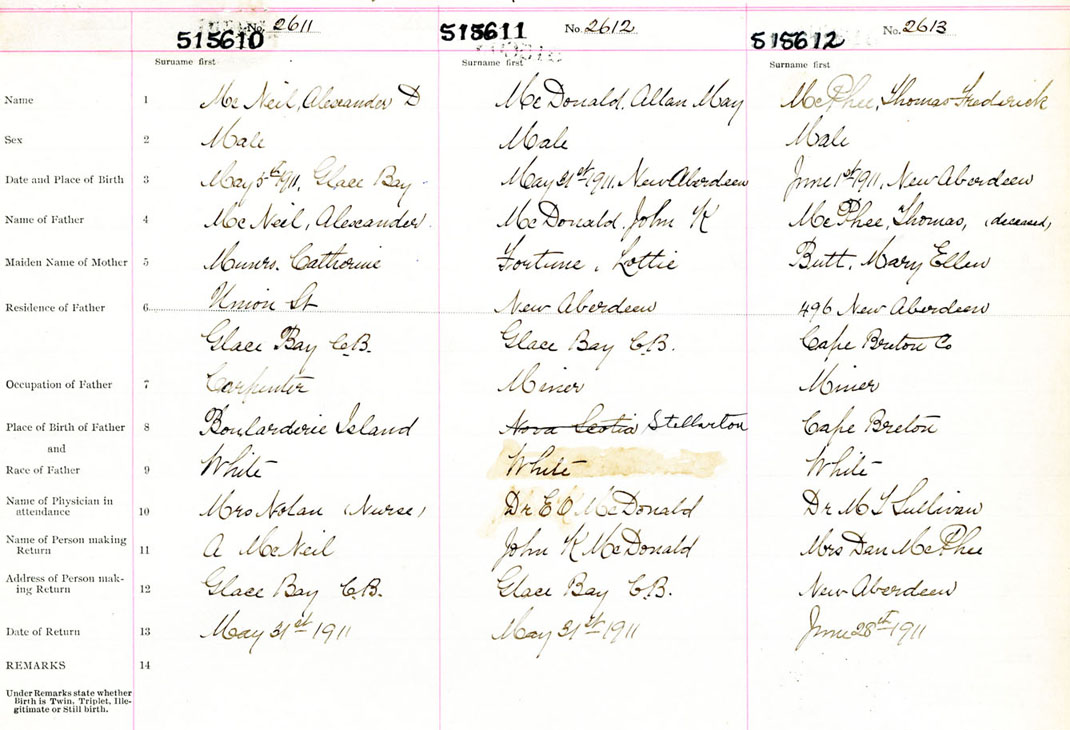 515610 No. 2611 515611 No. 2612 515612 No. 2613
Surname first Surname first Surname first
Name 1 Mc Neil, Alexander D McDonald, Allan May McPhee, Thomas Frederick
Sex 2 Male Male Male
Date and Place of Birth 3 May 5th 1911, Glace Bay May 31st 1911, New Aberdeen June 1st 1911, New Aberdeen
Name of Father 4 Mc Neil, Alexander McDonald, John K McPhee, Thomas, (deceased)
Maiden Name of Mother 5 Munro, Catherine Fortune, Lottie Butt, Mary Ellen
Residence of Father 6 Union St New Aberdeen 496 New Aberdeen
Glace Bay C.B. Glace Bay C.B. Cape Breton Co
Occupation of Father 7 Carpenter Miner Miner
Place of Birth of Father 8 Boularderie Island Nova Scotia Stellarton Cape Breton
and
Race of Father 9 White White White
Name of Physician in
attendance 10 Mrs Nolan (Nurse) Dr E O McDonald Dr M T Sullivan
Name of Person making
Return 11 A McNeil John K McDonald Mrs Dan McPhee
Address of Person mak-
ing Return 12 Glace Bay C.B. Glace Bay C.B. New Aberdeen
Date of Return 13 May 31st 1911 May 31st 1911 June 28th 1911
REMARKS 14
Under Remarks state whether
Birth is Twin, Triplet, Ille-
gitimate or Still birth.